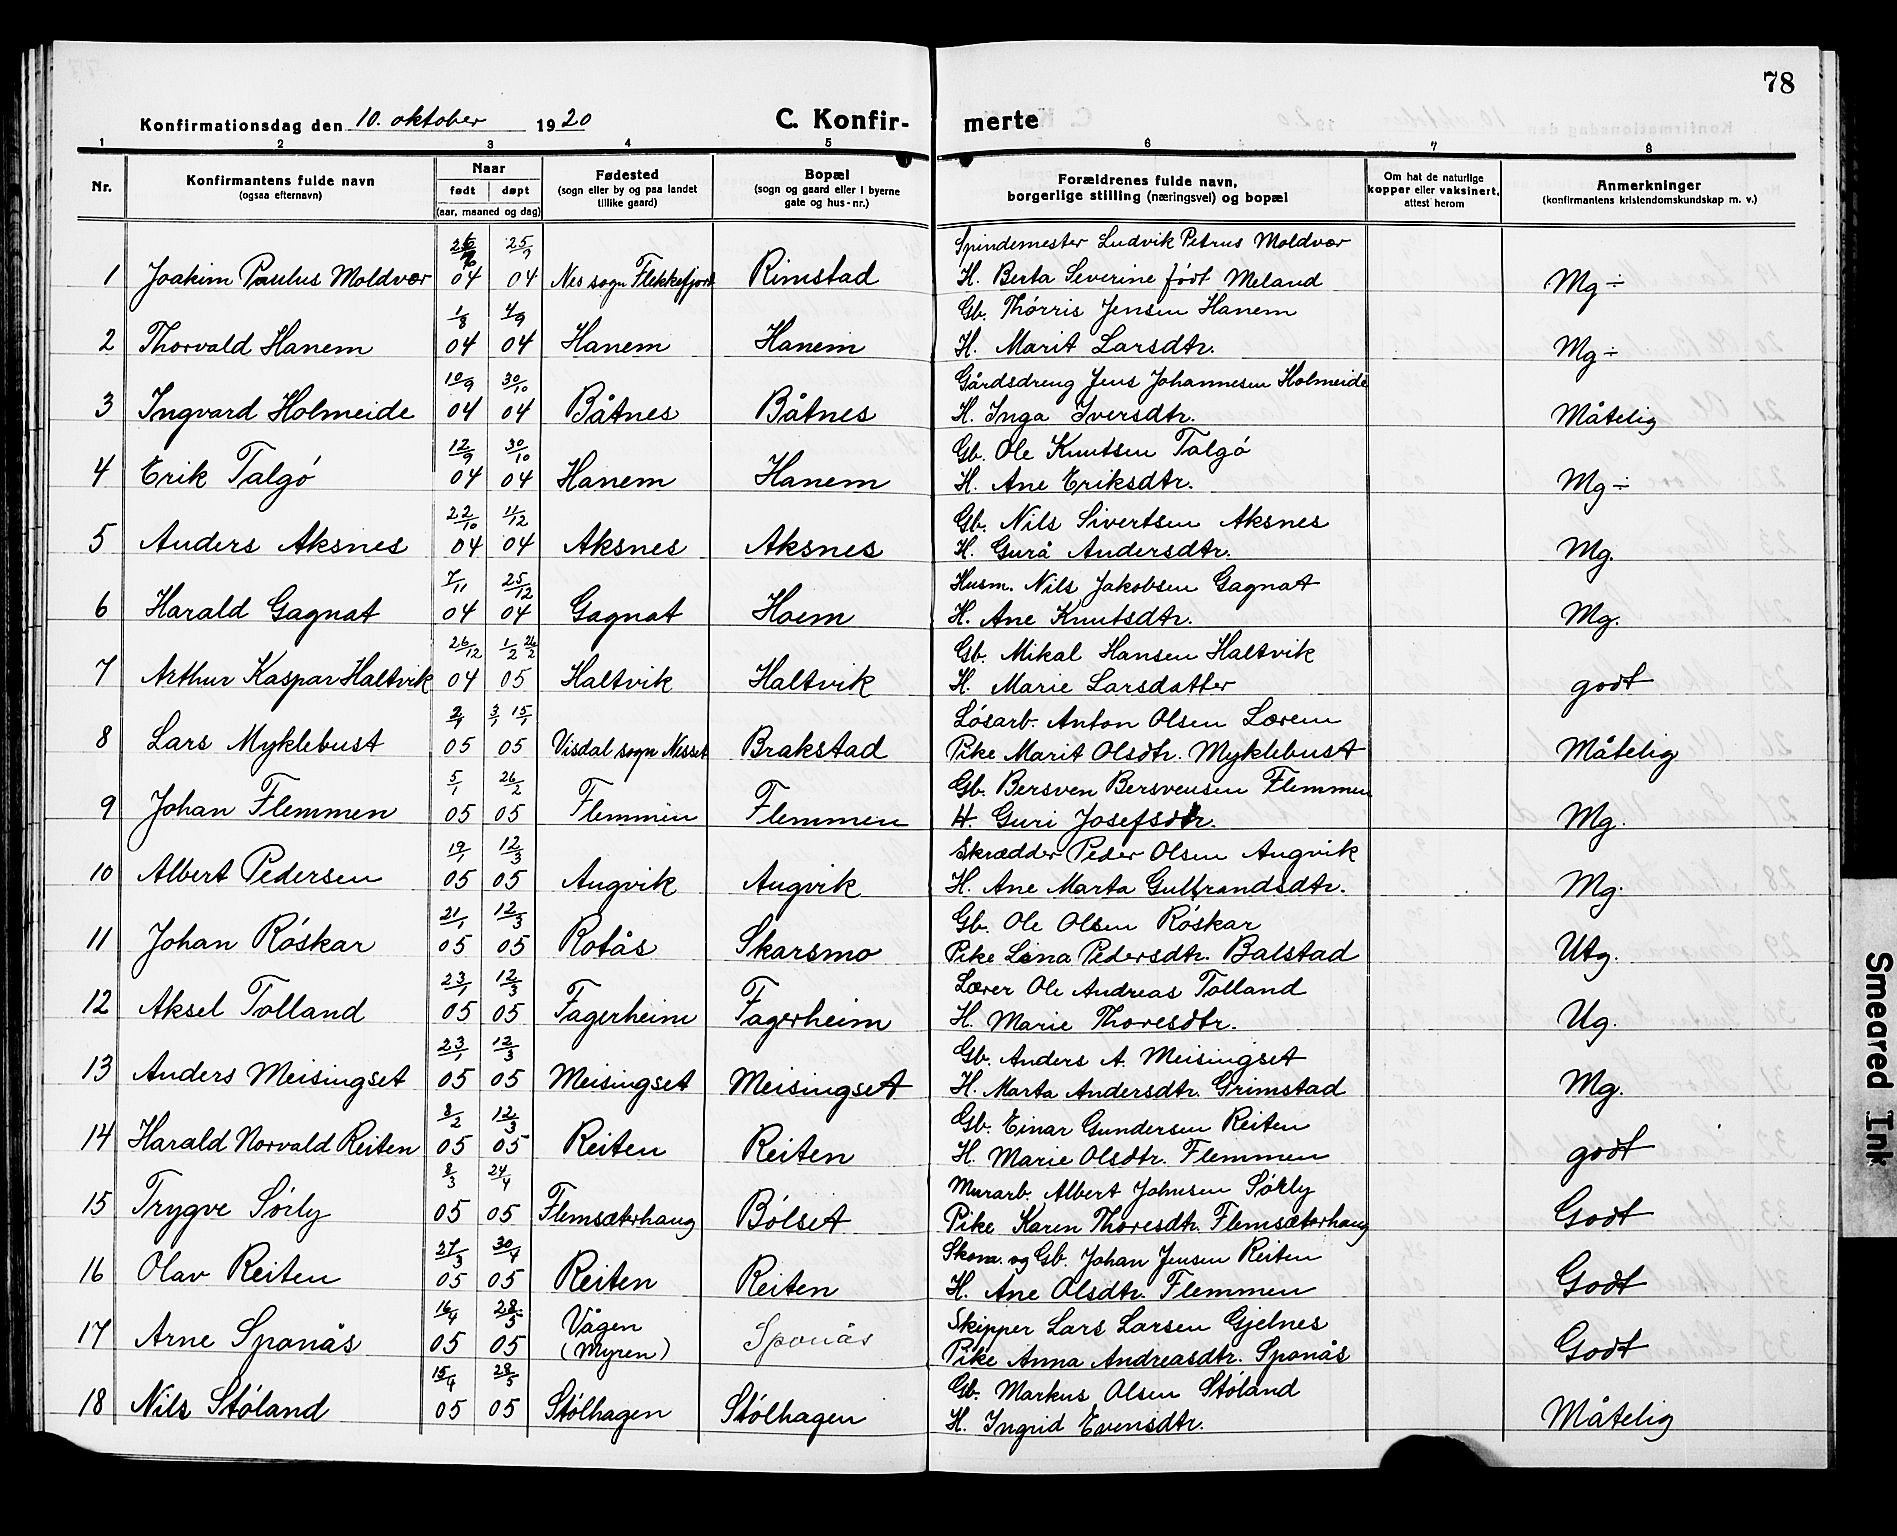 78
Konfirmationsdag den 10. oktober 1920
C. Konfir- merte
1 2 3 4 5 6 7 8
Nr.
Konfirmantens fulde navn
(ogsaa efternavn)
Naar
født døpt
(aar, maaned og dag)
Fødested
(sogn eller by og paa landet
tillike gaard)
Bopæl
(sogn og gaard eller i byerne
gate og hus-nr.)
Forældrenes fulde navn,
borgerlige stilling (næringsvei) og bopæl
Om hat de naturlige
kopper eller vaksinert,
attest herom
Anmerkninger
(konfirmantens kristendomskundskap m. v.)
25/7 Spindemester Ludvik Petrus Moldvær
1 Joakim Paulus Moldvær 04 04 Nes sogn Flekkefjord Rimstad H. Berta Severine født Meland Mg ÷
1/8 4/9 Gb. Thørris Jensen Hanem
2 Thorvald Hanem 04 04 Hanem Hanem H. Marit Larsdtr. Mg ÷
10/9 30/10 Gårdsdreng Jens Johannesen Holmeide
3 Ingvard Holmeide 04 04 Båtnes Båtnes H. Inga Iversdtr. Måtelig
12/9 30/10 Gb. Ole Knutsen Talgö
4 Erik Talgó 04 04 Hanem Hanem H. Ane Eriksdtr. Mg ÷
22/10 11/12 Gb. Nils Sivertsen Aksnes
5 Anders Aksnes 04 04 Aksnes Aksnes H. Gurå Andersdtr. Mg.
7/11 25/12 Husm. Nils Jakobsen Gagnat
6 Harald Gagnat 04 04 Gagnat Hoem H. Ane Knutsdtr. Mg.
26/12 1/2 26/2 Gb. Mikal Hansen Haltvik
7 Arthur Kaspar Haltvik 04 05 Haltvik Haltvik H. Marie Larsdatter godt
2/1 3/1 15/1 Løsarb. Anton Olsen Lærem
8 Lars Myklebust 05 05 Visdal sogn Nesset Brakstad Pike Marit Olsdtr. Myklebust Måtelig
5/1 26/2 Gb. Bersven Bersvensen Flemmen
9 Johan Flemmen 05 05 Flemmen Flemmen H. Guri Josefsdtr. Mg.
19/1 12/3 Skrædder Peder Olsen Angvik
10 Albert Pedersen 05 05 Angvik Angvik H. Ane Marta Gulbrandsdtr. Mg.
21/1 12/3 Gb. Ole Olsen Røskar
11 Johan Róskar 05 05 Rotås Skarsmo Pike Lina Pedersdtr. Balstad Utg.
23/1 12/3 Lærer Ole Andreas Tolland
12 Aksel Tolland 05 05 Fagerheim Fagerheim H. Marie Thoresdtr. Ug.
23/1 12/3 Gb. Anders A. Meisingset
13 Anders Meisingset 05 05 Meisingset Meisingset H. Marta Andersdtr. Grimstad Mg.
8/2 12/3 Gb. Einar Gundersen Reiten
14 Harald Norvald Reiten 05 05 Reiten Reiten H. Marie Olsdtr. Flemmen godt
8/3 24/4 Murarb. Albert Johnsen Sørly
15 Trygve Sørly 05 05 Flemsæterhaug Bólset Pike Karen Thoresdtr. Flemsæterhaug Godt
27/3 30/4 Skom. og Gb. Johan Jensen Reiten
16 Olav Reiten 05 05 Reiten Reiten H. Ane Olsdtr. Flemmen Godt
16/4 28/5 Vågen Skipper Lars Larsen Gjelnes
17 Arne Sponås 05 05 (Myren) Sponås Pike Anna Andreasdtr. Sponås Godt
15/4 28/5 Gb. Markus Olsen Stóland
18 Nils Stóland 05 05 Stólhagen Stólhagen H. Ingrid Evensdtr. Måtelig
Smeared Ink